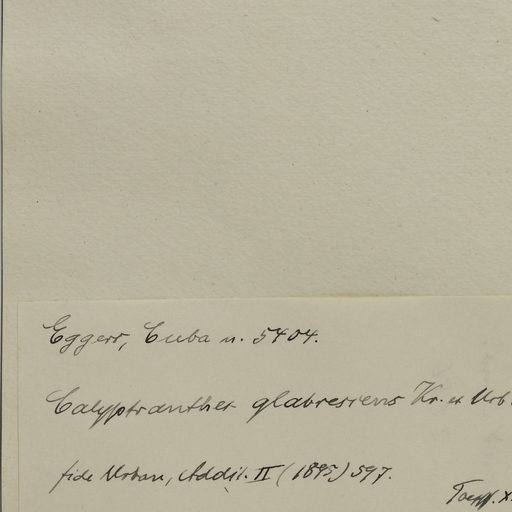 Eggers, Cuba n. 5404.
Calyptranthes glabrescens Kr. et Urb.
fide Urban, Addit. II (1895) 597.